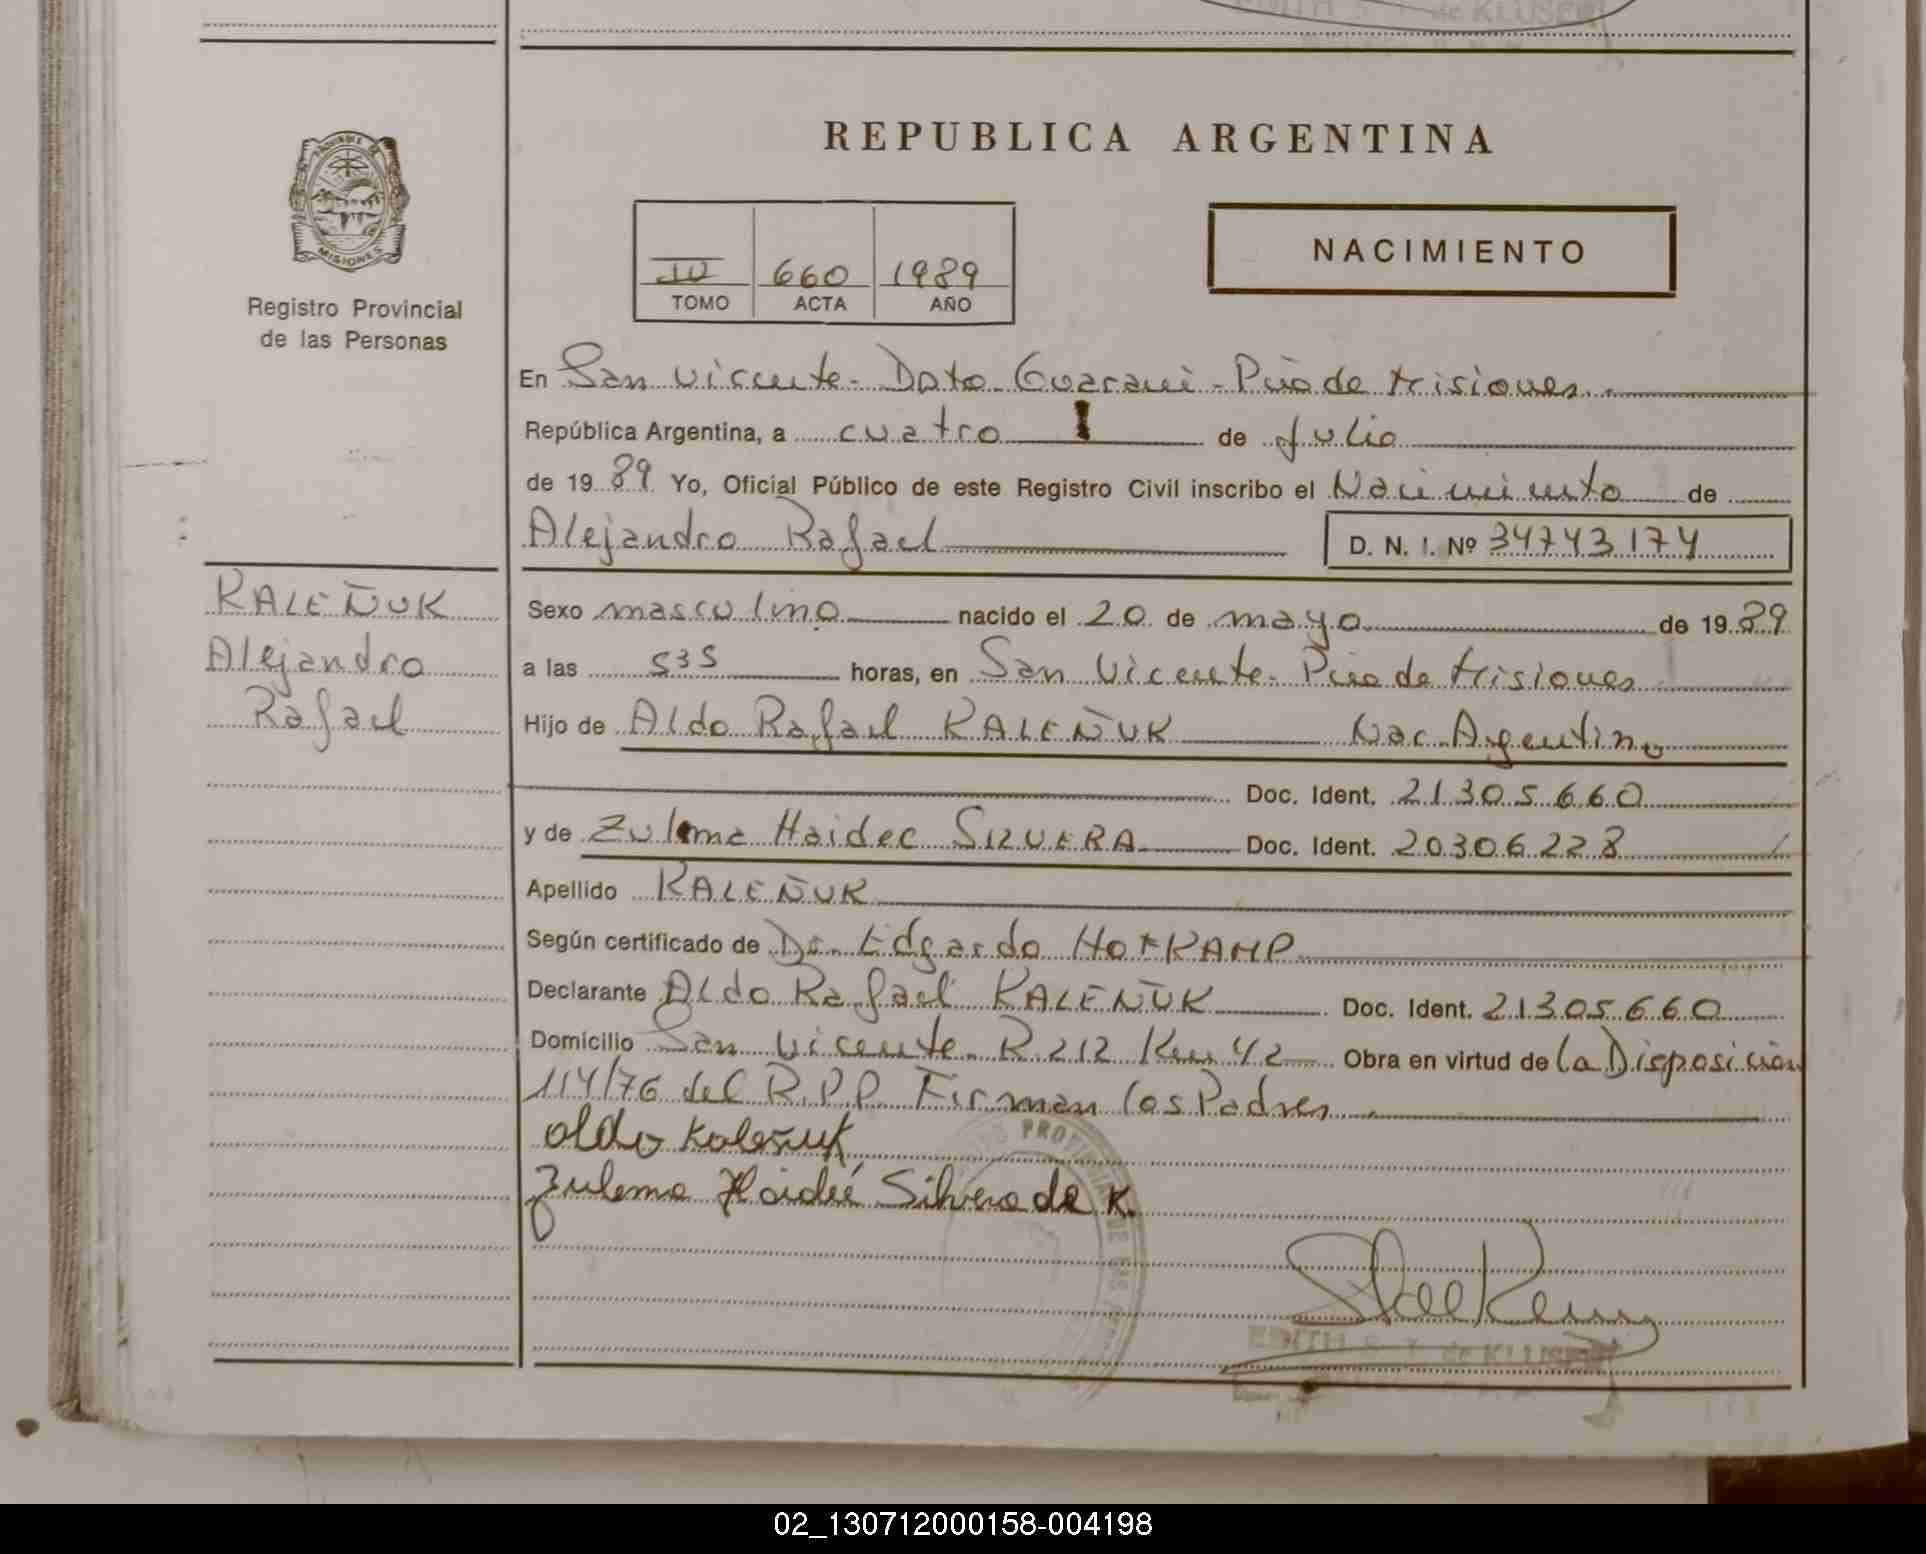 de KLUSER
REPUBLICA ARGENTINA
PROVINCIA DE
MISIONES
Registro Provincial
de las Personas
IV 660 1989
TOMO ACTA AÑO
NACIMIENTO
En San Vicente - Dpto. Guaraní - Pcia de Misiones.
República Argentina, a cuatro de Julio
de 1989 Yo, Oficial Público de este Registro Civil inscribo el Nacimiento de
Alejandro Rafael D. N. I. Nº 34743174
KALEÑUK
Alejandro
Rafael
Sexo masculino nacido el 20 de mayo de 1989
a las 535 horas, en San Vicente - Pcia de Misiones
Hijo de Aldo Rafael KALEÑUK Nac. Argentino
Doc. Ident. 21305660
y de Zulema Haidee SILVERA Doc. Ident. 20306228
Apellido KALEÑUK
Según certificado de Dr. Edgardo HOFKAMP
Declarante Aldo Rafael KALEÑUK Doc. Ident. 21305660
Domicilio San Vicente R 212 Km 42 Obra en virtud de la Disposición
114/76 del R.P.P. Firman los Padres
aldo Kaleñuk
Zulema Haideé Silvera de K.
EDITH S. T. de KLUSER
02_130712000158-004198